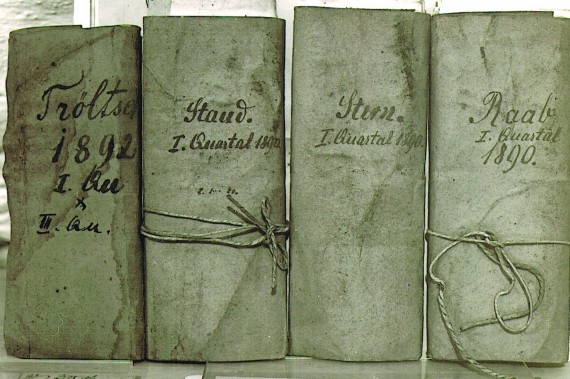 Tröltsc
1892
I. Qu
x
III. Qu.
Staud.
I. Quartal 1890
Stern.
I. Quartal 1890.
Raab
I. Quartal
1890.